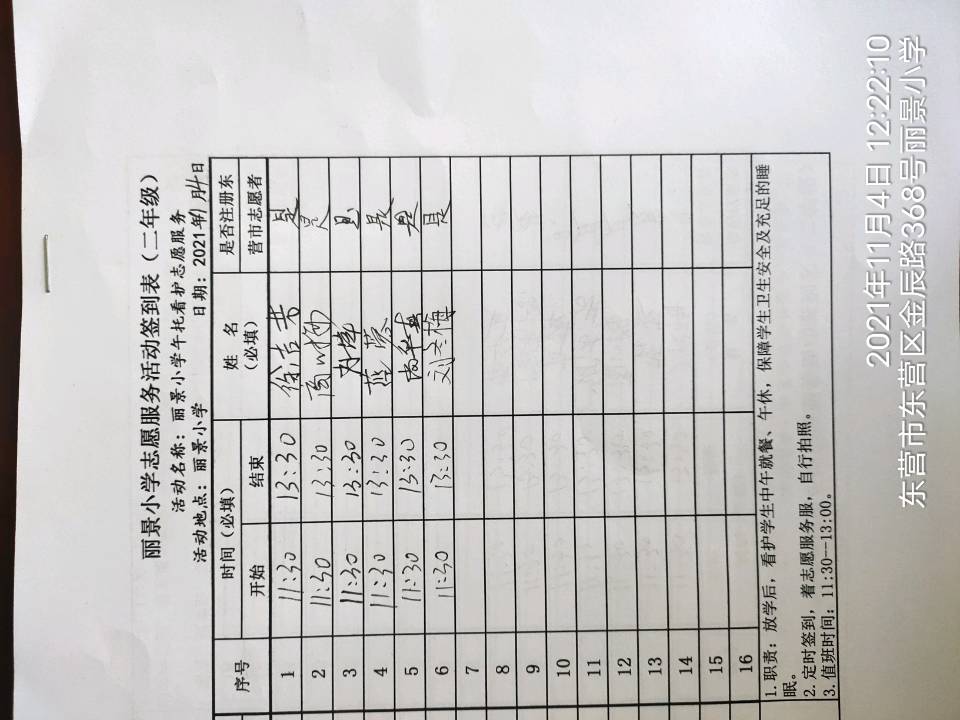 丽景小学志愿服务活动签到表（二年级）
活动名称：丽景小学午托看护志愿服务
活动地点：丽景小学 日期：2021年11月4日
序号 时间（必填） 姓名（必填） 是否注册东营市志愿者
开始 结束
1 11:30 13:30 徐吉芳 是
2 11:30 13:30 是
3 11:30 13:30 是
4 11:30 13:30 燕蒙 是
5 11:30 13:30 是
6 11:30 13:30 刘冬梅 是
7
8
9
10
11
12
13
14
15
16
1. 职责：放学后，看护学生中午就餐、午休，保障学生卫生安全及充足的睡
眠。
2. 定时签到，着志愿服务服，自行拍照。
3. 值班时间：11:30—13:00。
2021年11月4日 12:22:10
东营市东营区金辰路368号丽景小学